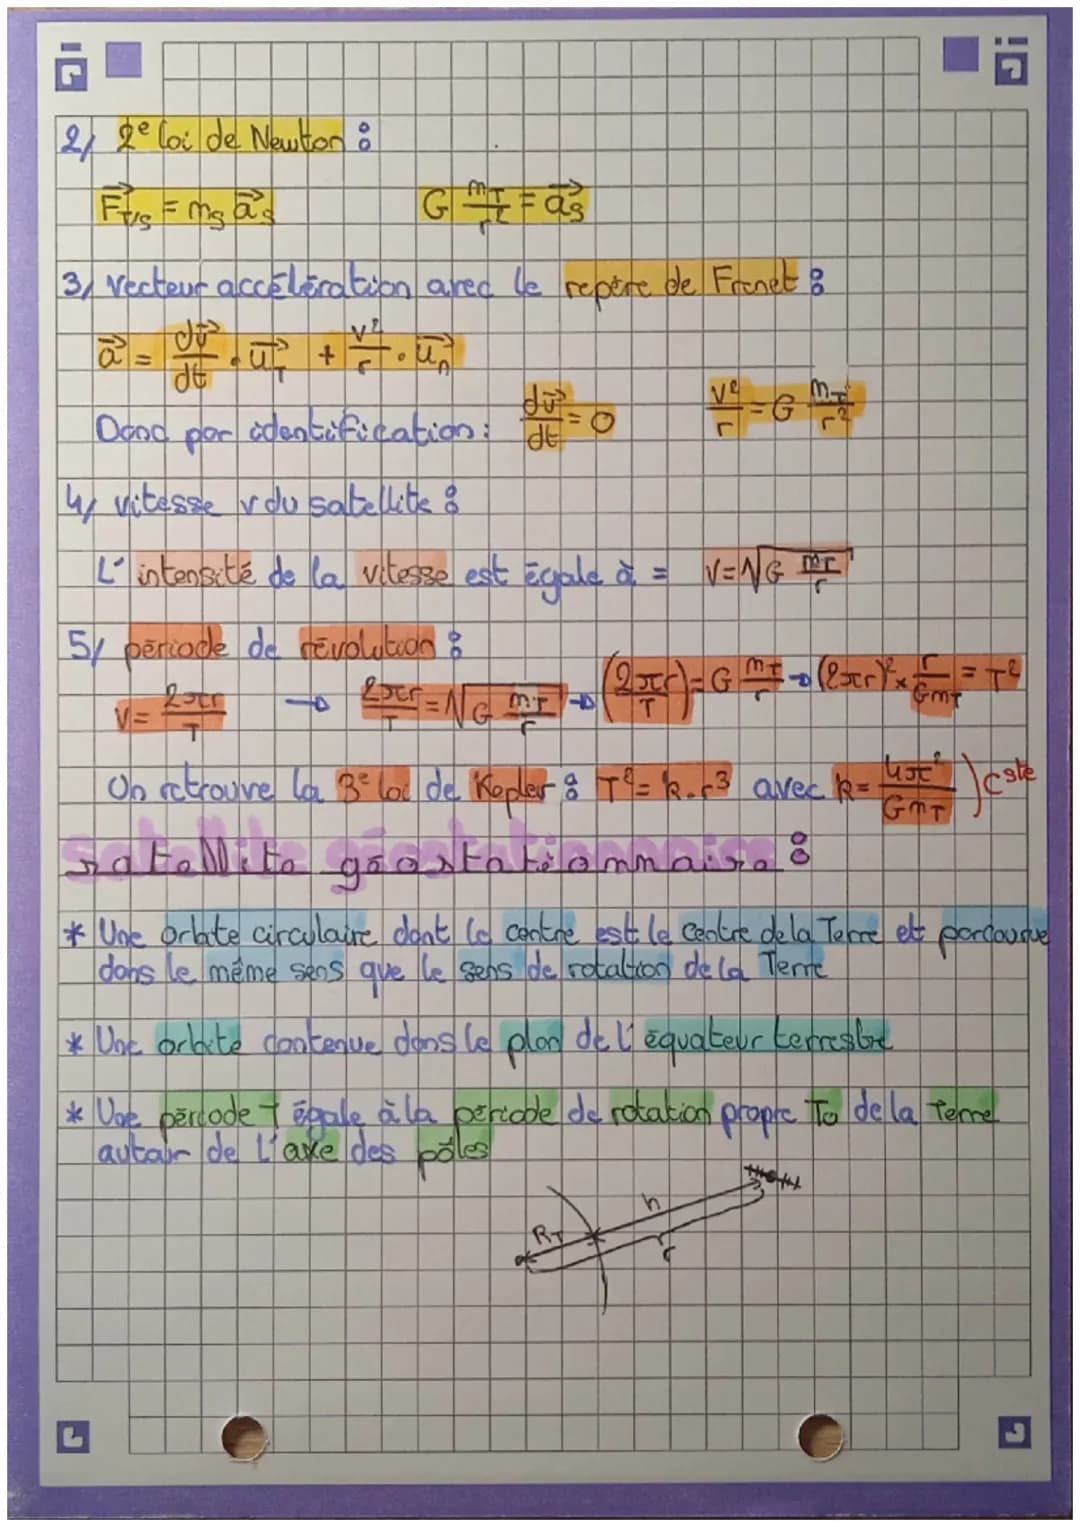 2/ 2e loi de Newton :
F⃗T/S = mS a⃗S    G mT/r² = a⃗S
3/ Vecteur accélération avec le repère de Frenet :
a⃗ = dv⃗/dt . u⃗T + v²/r . u⃗n
Donc par identification : dv⃗/dt = 0    v²/r = G mT/r²
4/ vitesse v du satellite :
L'intensité de la vitesse est égale à = V=√G mT/r
5/ période de révolution :
V = 2πr/T → 2πr/T = √G mT/r → (2πr/T) = G mT/r → (2πr)² × r/GmT = T²
On retrouve la 3e loi de Kepler : T² = k.r³ avec k = 4π²/GmT ) Cste
satellite géostationnaire :
* Une orbite circulaire dont le centre est le centre de la Terre et parcourue
dans le même sens que le sens de rotation de la Terre
* Une orbite contenue dans le plan de l'équateur terrestre
* Une période T égale à la période de rotation propre To de la Terre
autour de l'axe des pôles
h
RT
r